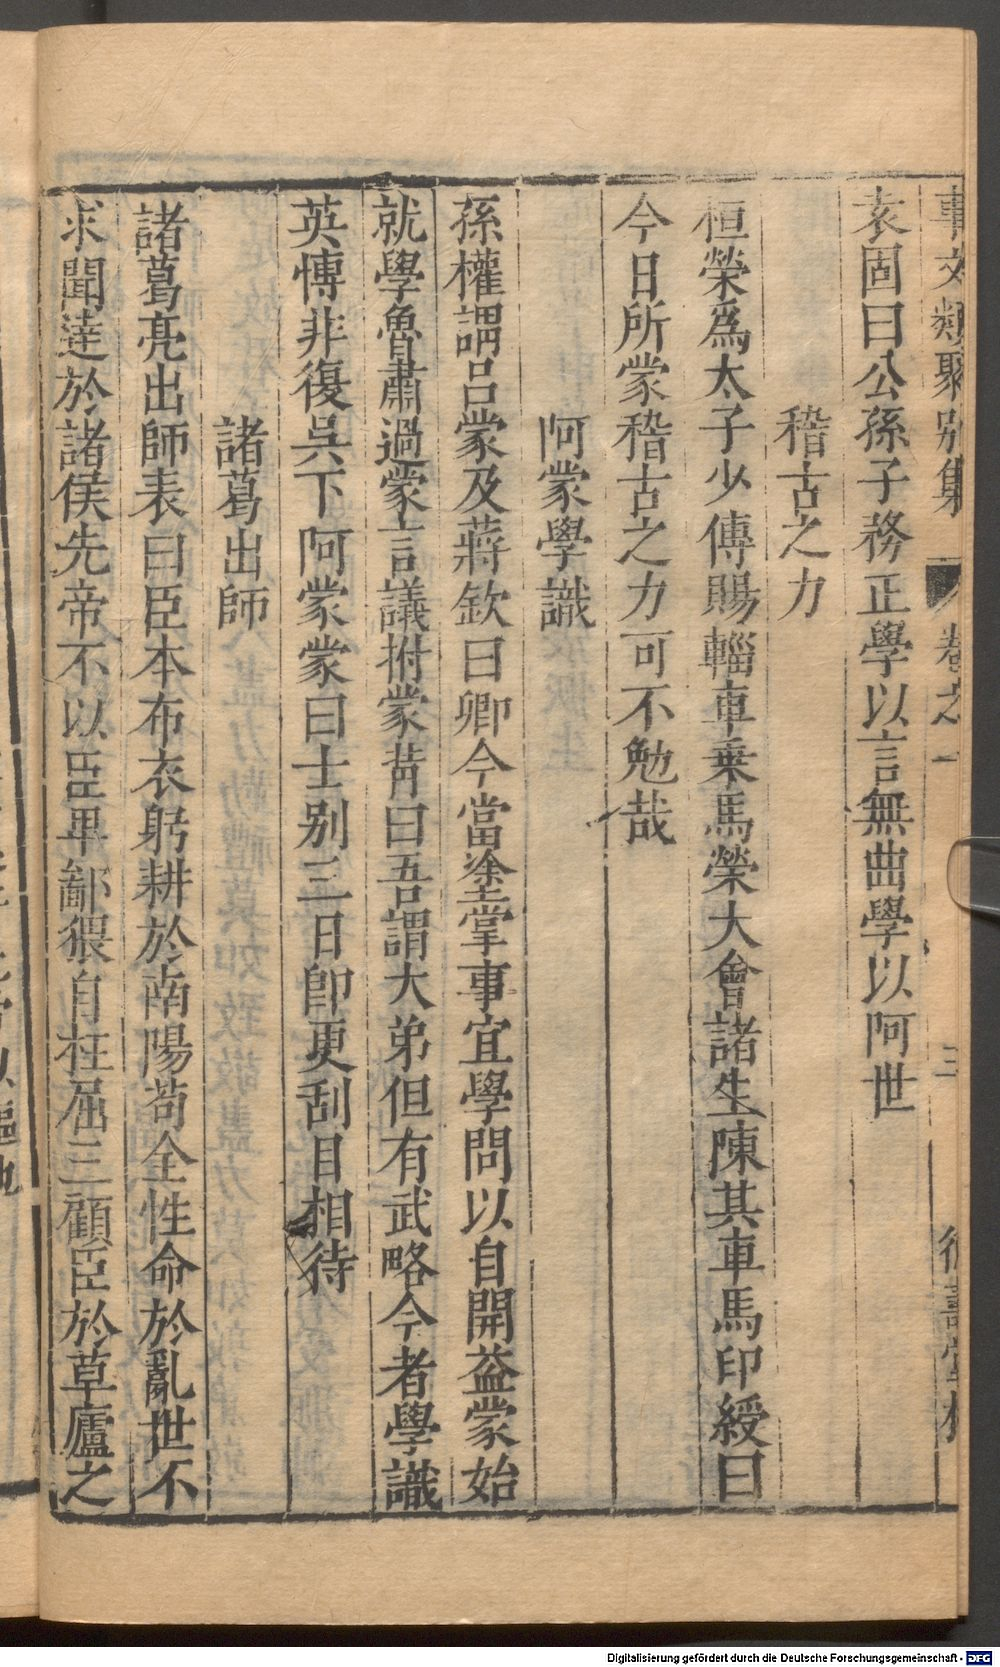 事文類聚別集 卷之一 三
袁固曰公孫子務正學以言無曲學以阿世
稽古之力
桓榮為太子少傅賜輜車乗馬榮大會諸生陳其車馬印綬曰
今日所蒙稽古之力可不勉哉
阿蒙學識
孫權謂呂蒙及蔣欽曰卿今當塗掌事宜學問以自開益蒙始
就學魯肅過蒙言議拊蒙背曰吾謂大弟但有武略今者學識
英博非復吳下阿蒙蒙曰士别三日卽更刮目相待
諸葛出師
諸葛亮出師表曰臣本布衣躬耕於南陽苟全性命於亂世不
求聞達於諸侯先帝不以臣卑鄙猥自枉屈三顧臣於草廬之
Digitalisierung gefördert durch die Deutsche Forschungsgemeinschaft - DFG